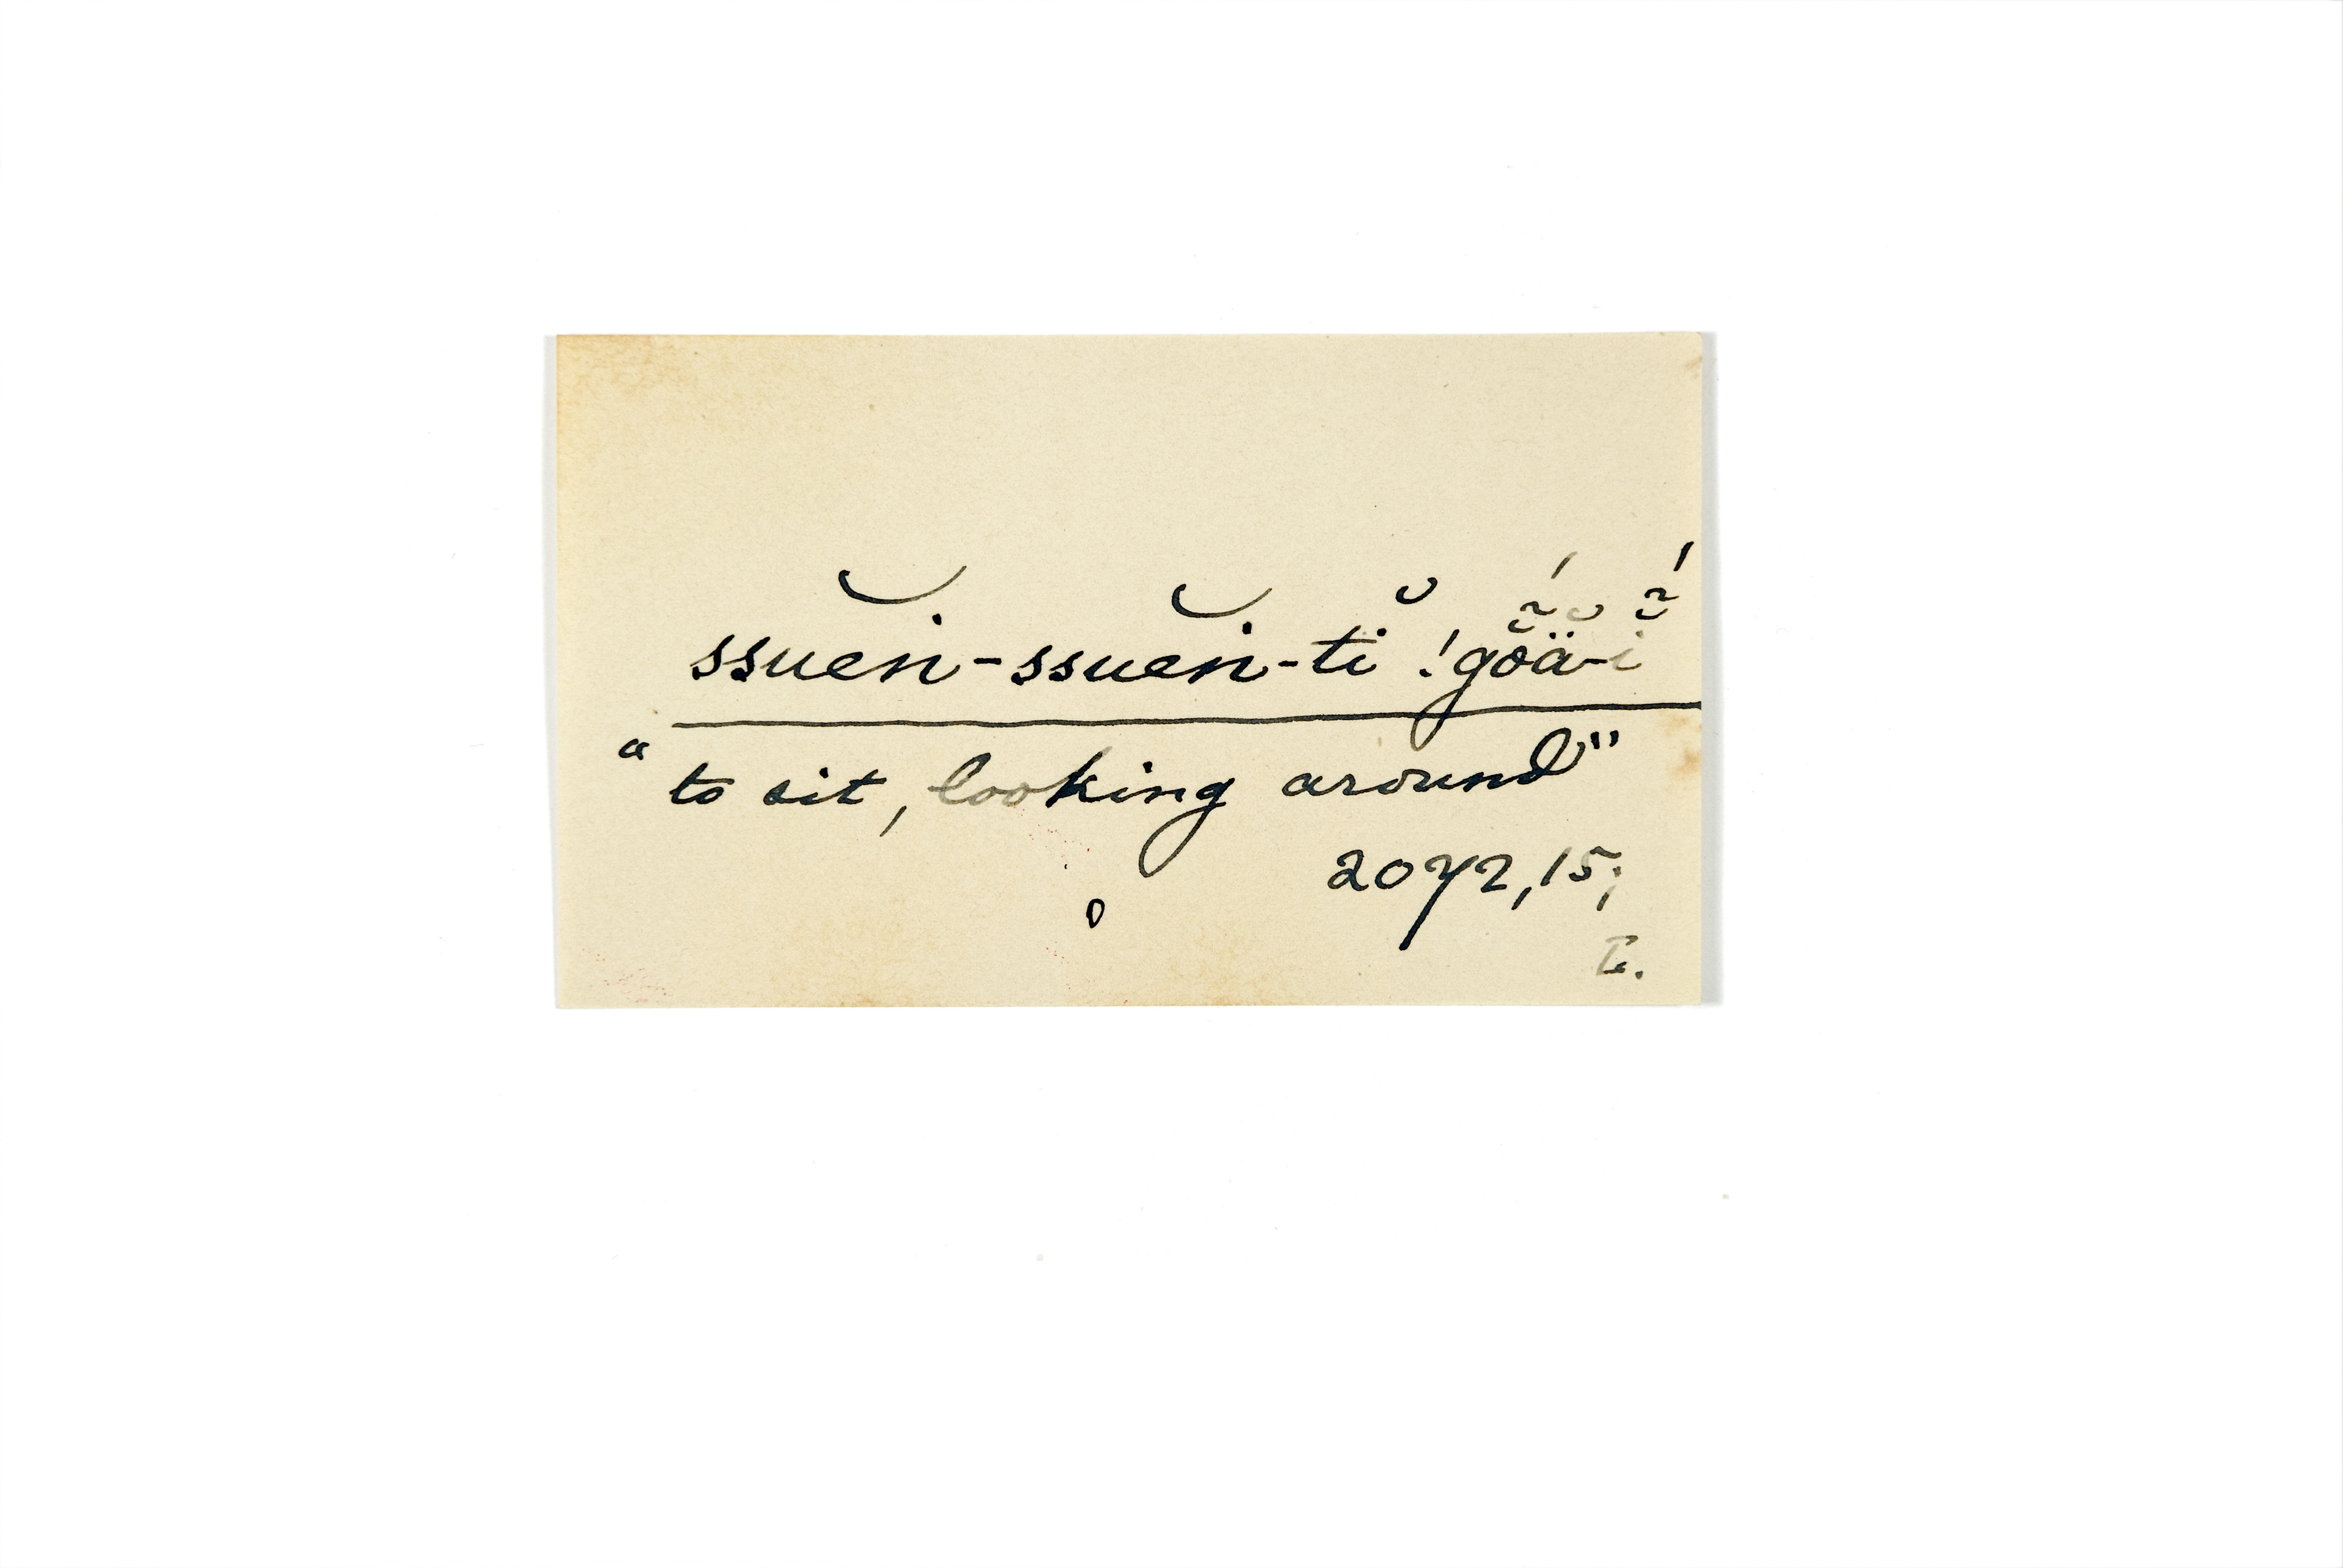 ssuen͝i-ssuen͝i-tĭ !gȭä̆-ĭ̃́
"to sit, looking around"
2072, 15;
L.